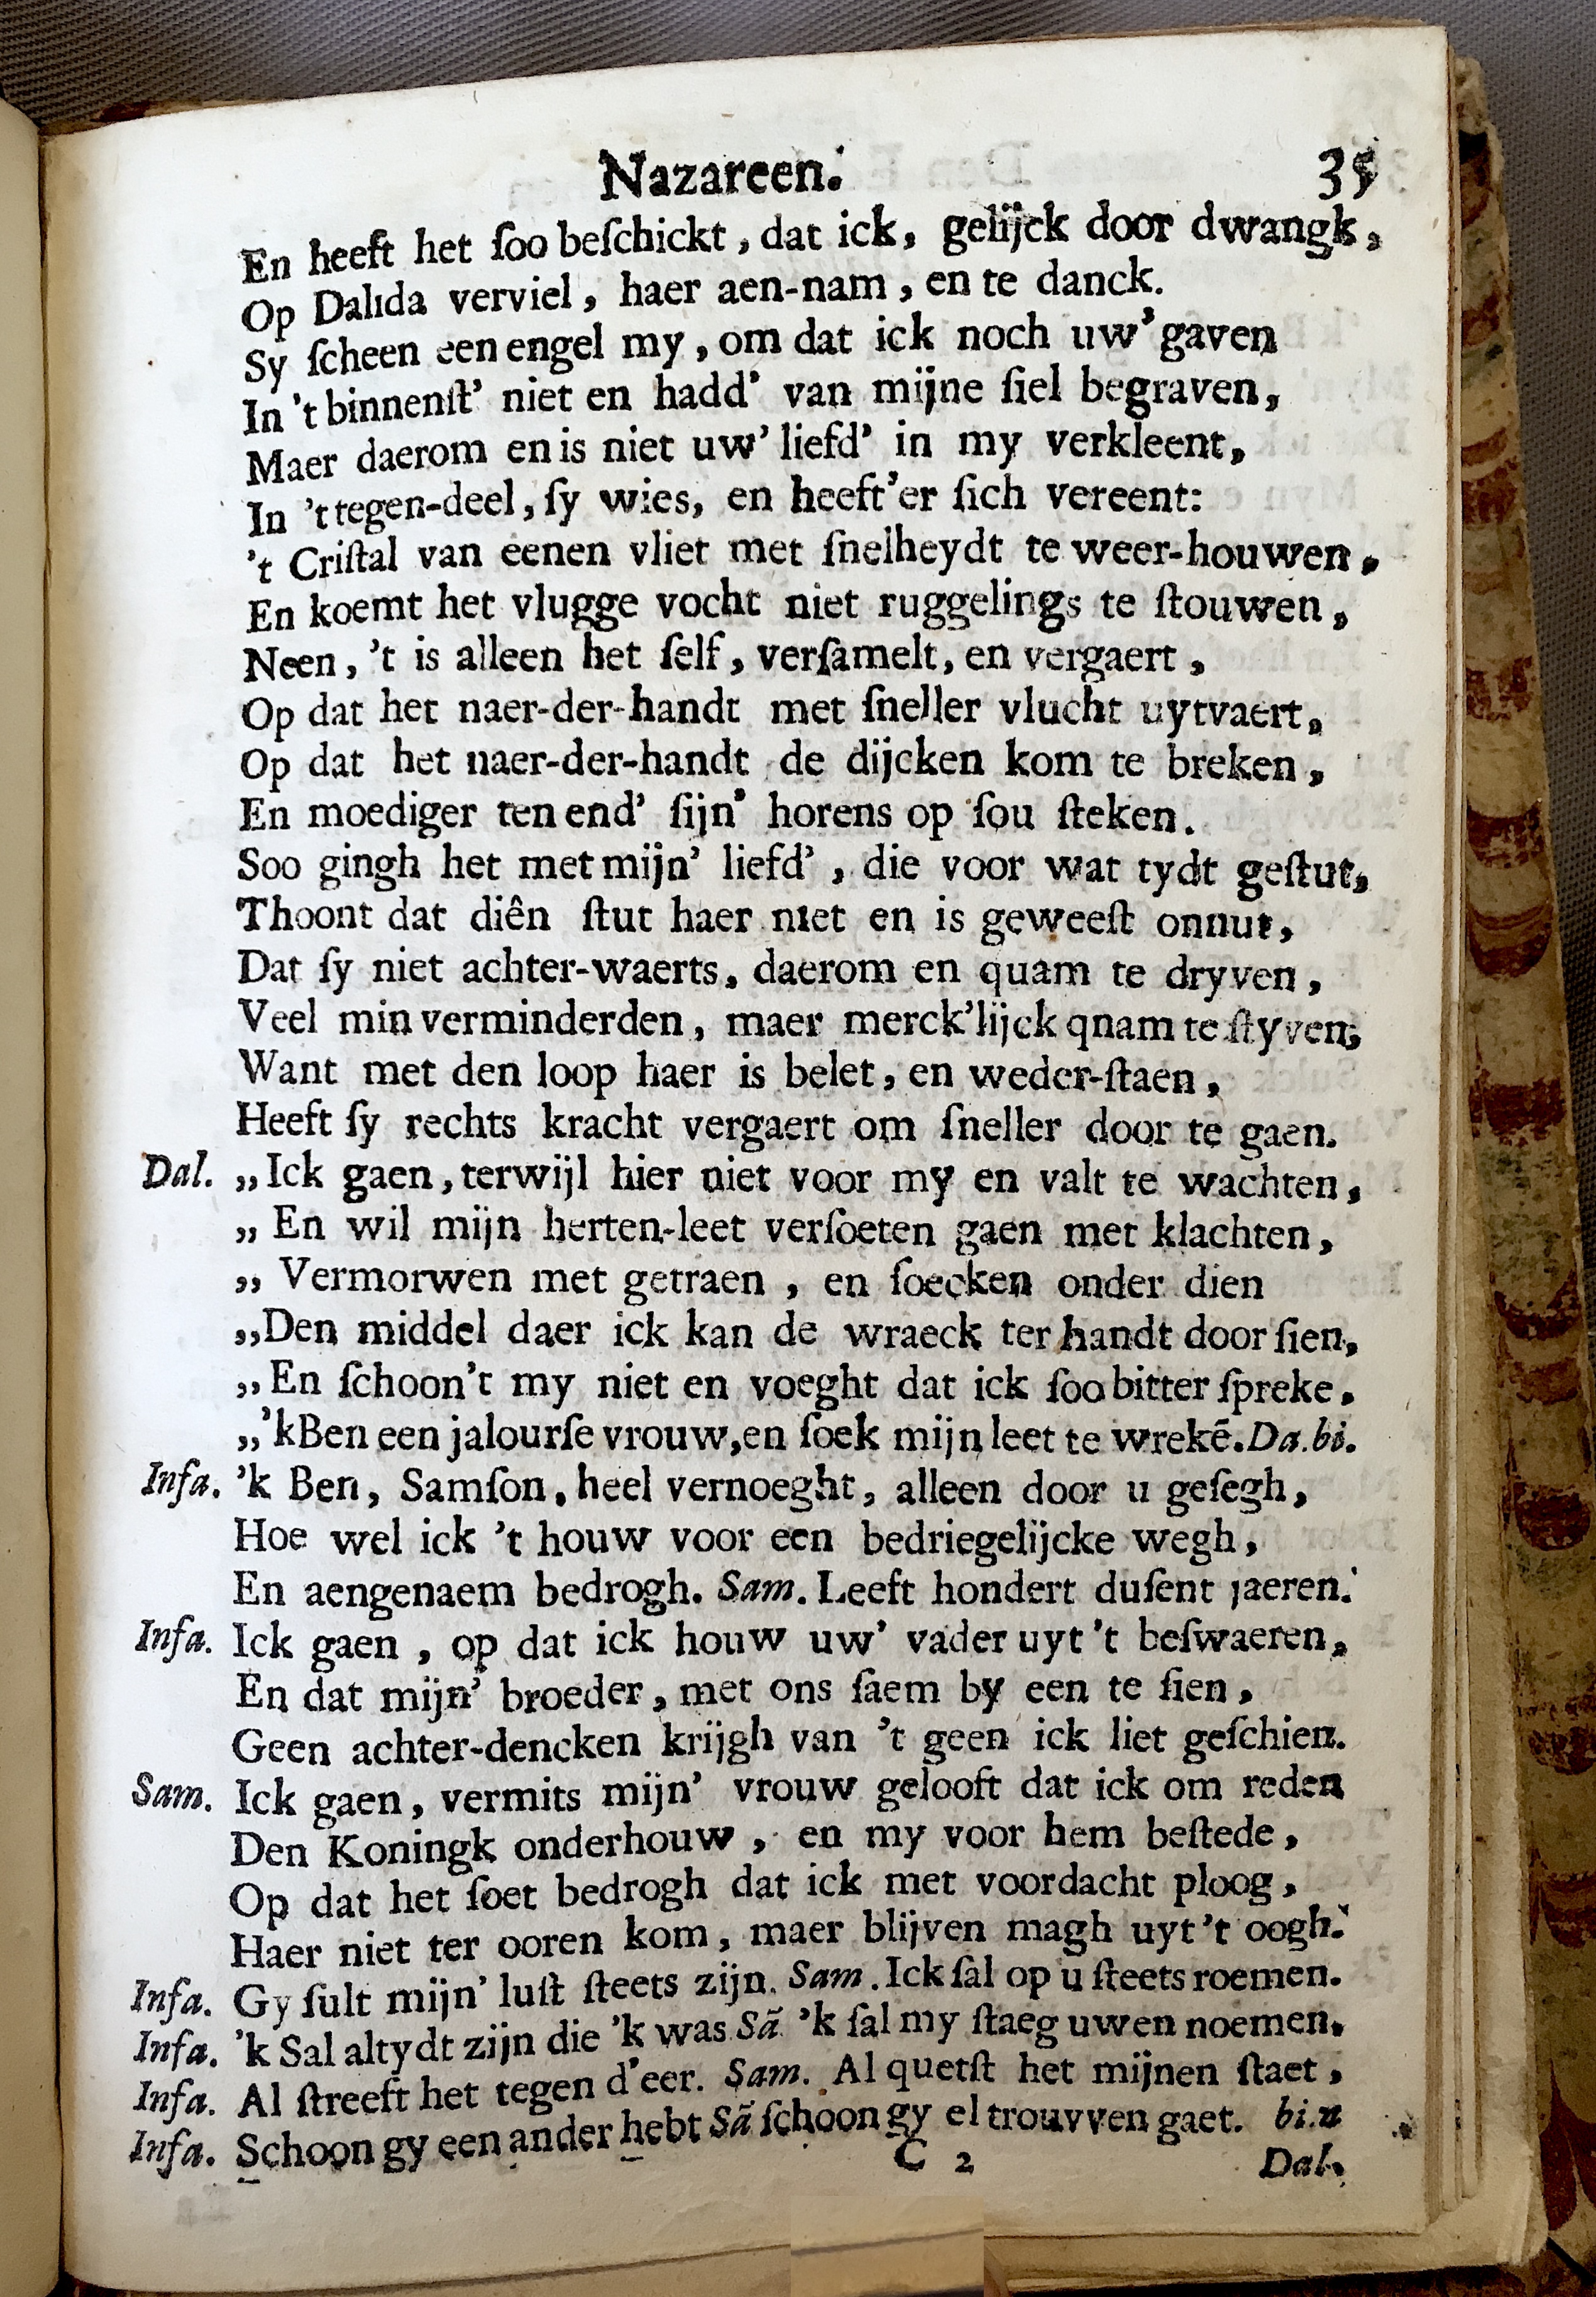 Nazareen. 35
En heeft het ſoo beſchickt, dat ick, gelijck door dwangk,
Op Dalida verviel, haer aen-nam, en te danck.
Sy ſcheen een engel my, om dat ick noch uw' gaven
In 't binnenſt' niet en hadd' van mijne ſiel begraven,
Maer daerom en is niet uw' liefd' in my verkleent,
In 't tegen-deel, ſy wies, en heeft'er ſich vereent:
't Criſtal van eenen vliet met ſnelheydt te weer-houwen,
En koemt het vlugge vocht niet ruggelings te ſtouwen,
Neen, 't is alleen het ſelf, verſamelt, en vergaert,
Op dat het naer-der-handt met ſneller vlucht uytvaert,
Op dat het naer-der-handt de dijcken kom te breken,
En moediger ten end' ſijn' horens op ſou ſteken.
Soo gingh het met mijn' liefd', die voor wat tydt geſtut,
Thoont dat diên ſtut haer niet en is geweeſt onnut,
Dat ſy niet achter-waerts, daerom en quam te dryven,
Veel min verminderden, maer merck'lijck qnam te ſtyven;
Want met den loop haer is belet, en weder-ſtaen,
Heeft ſy rechts kracht vergaert om ſneller door te gaen.
Dal. „Ick gaen, terwijl hier niet voor my en valt te wachten,
„ En wil mijn herten-leet verſoeten gaen met klachten,
„ Vermorwen met getraen, en ſoecken onder dien
„Den middel daer ick kan de wraeck ter handt door ſien,
„En ſchoon't my niet en voeght dat ick ſoo bitter ſpreke,
„'kBen een jalourſe vrouw,en ſoek mijn leet te wrekẽ. Da.bi.
Inſa. 'k Ben, Samſon, heel vernoeght, alleen door u geſegh,
Hoe wel ick 't houw voor een bedriegelijcke wegh,
En aengenaem bedrogh. Sam. Leeft hondert duſent jaeren.
Inſa. Ick gaen, op dat ick houw uw' vader uyt 't beſwaeren,
En dat mijn' broeder, met ons ſaem by een te ſien,
Geen achter-dencken krijgh van 't geen ick liet geſchien.
Sam. Ick gaen, vermits mijn' vrouw gelooft dat ick om reden
Den Koningk onderhouw, en my voor hem beſtede,
Op dat het ſoet bedrogh dat ick met voordacht ploog,
Haer niet ter ooren kom, maer blijven magh uyt 't oogh.
Inſa. Gy ſult mijn' luſt ſteets zijn. Sam. Ick ſal op u ſteets roemen.
Inſa. 'k Sal altydt zijn die 'k was Sã 'k ſal my ſtaeg uwen noemen.
Inſa. Al ſtreeft het tegen d'eer. Sam. Al quetſt het mijnen ſtaet,
Inſa. Schoon gy een ander hebt Sã ſchoon gy el trouvven gaet. bi.n
C 2 Dal.